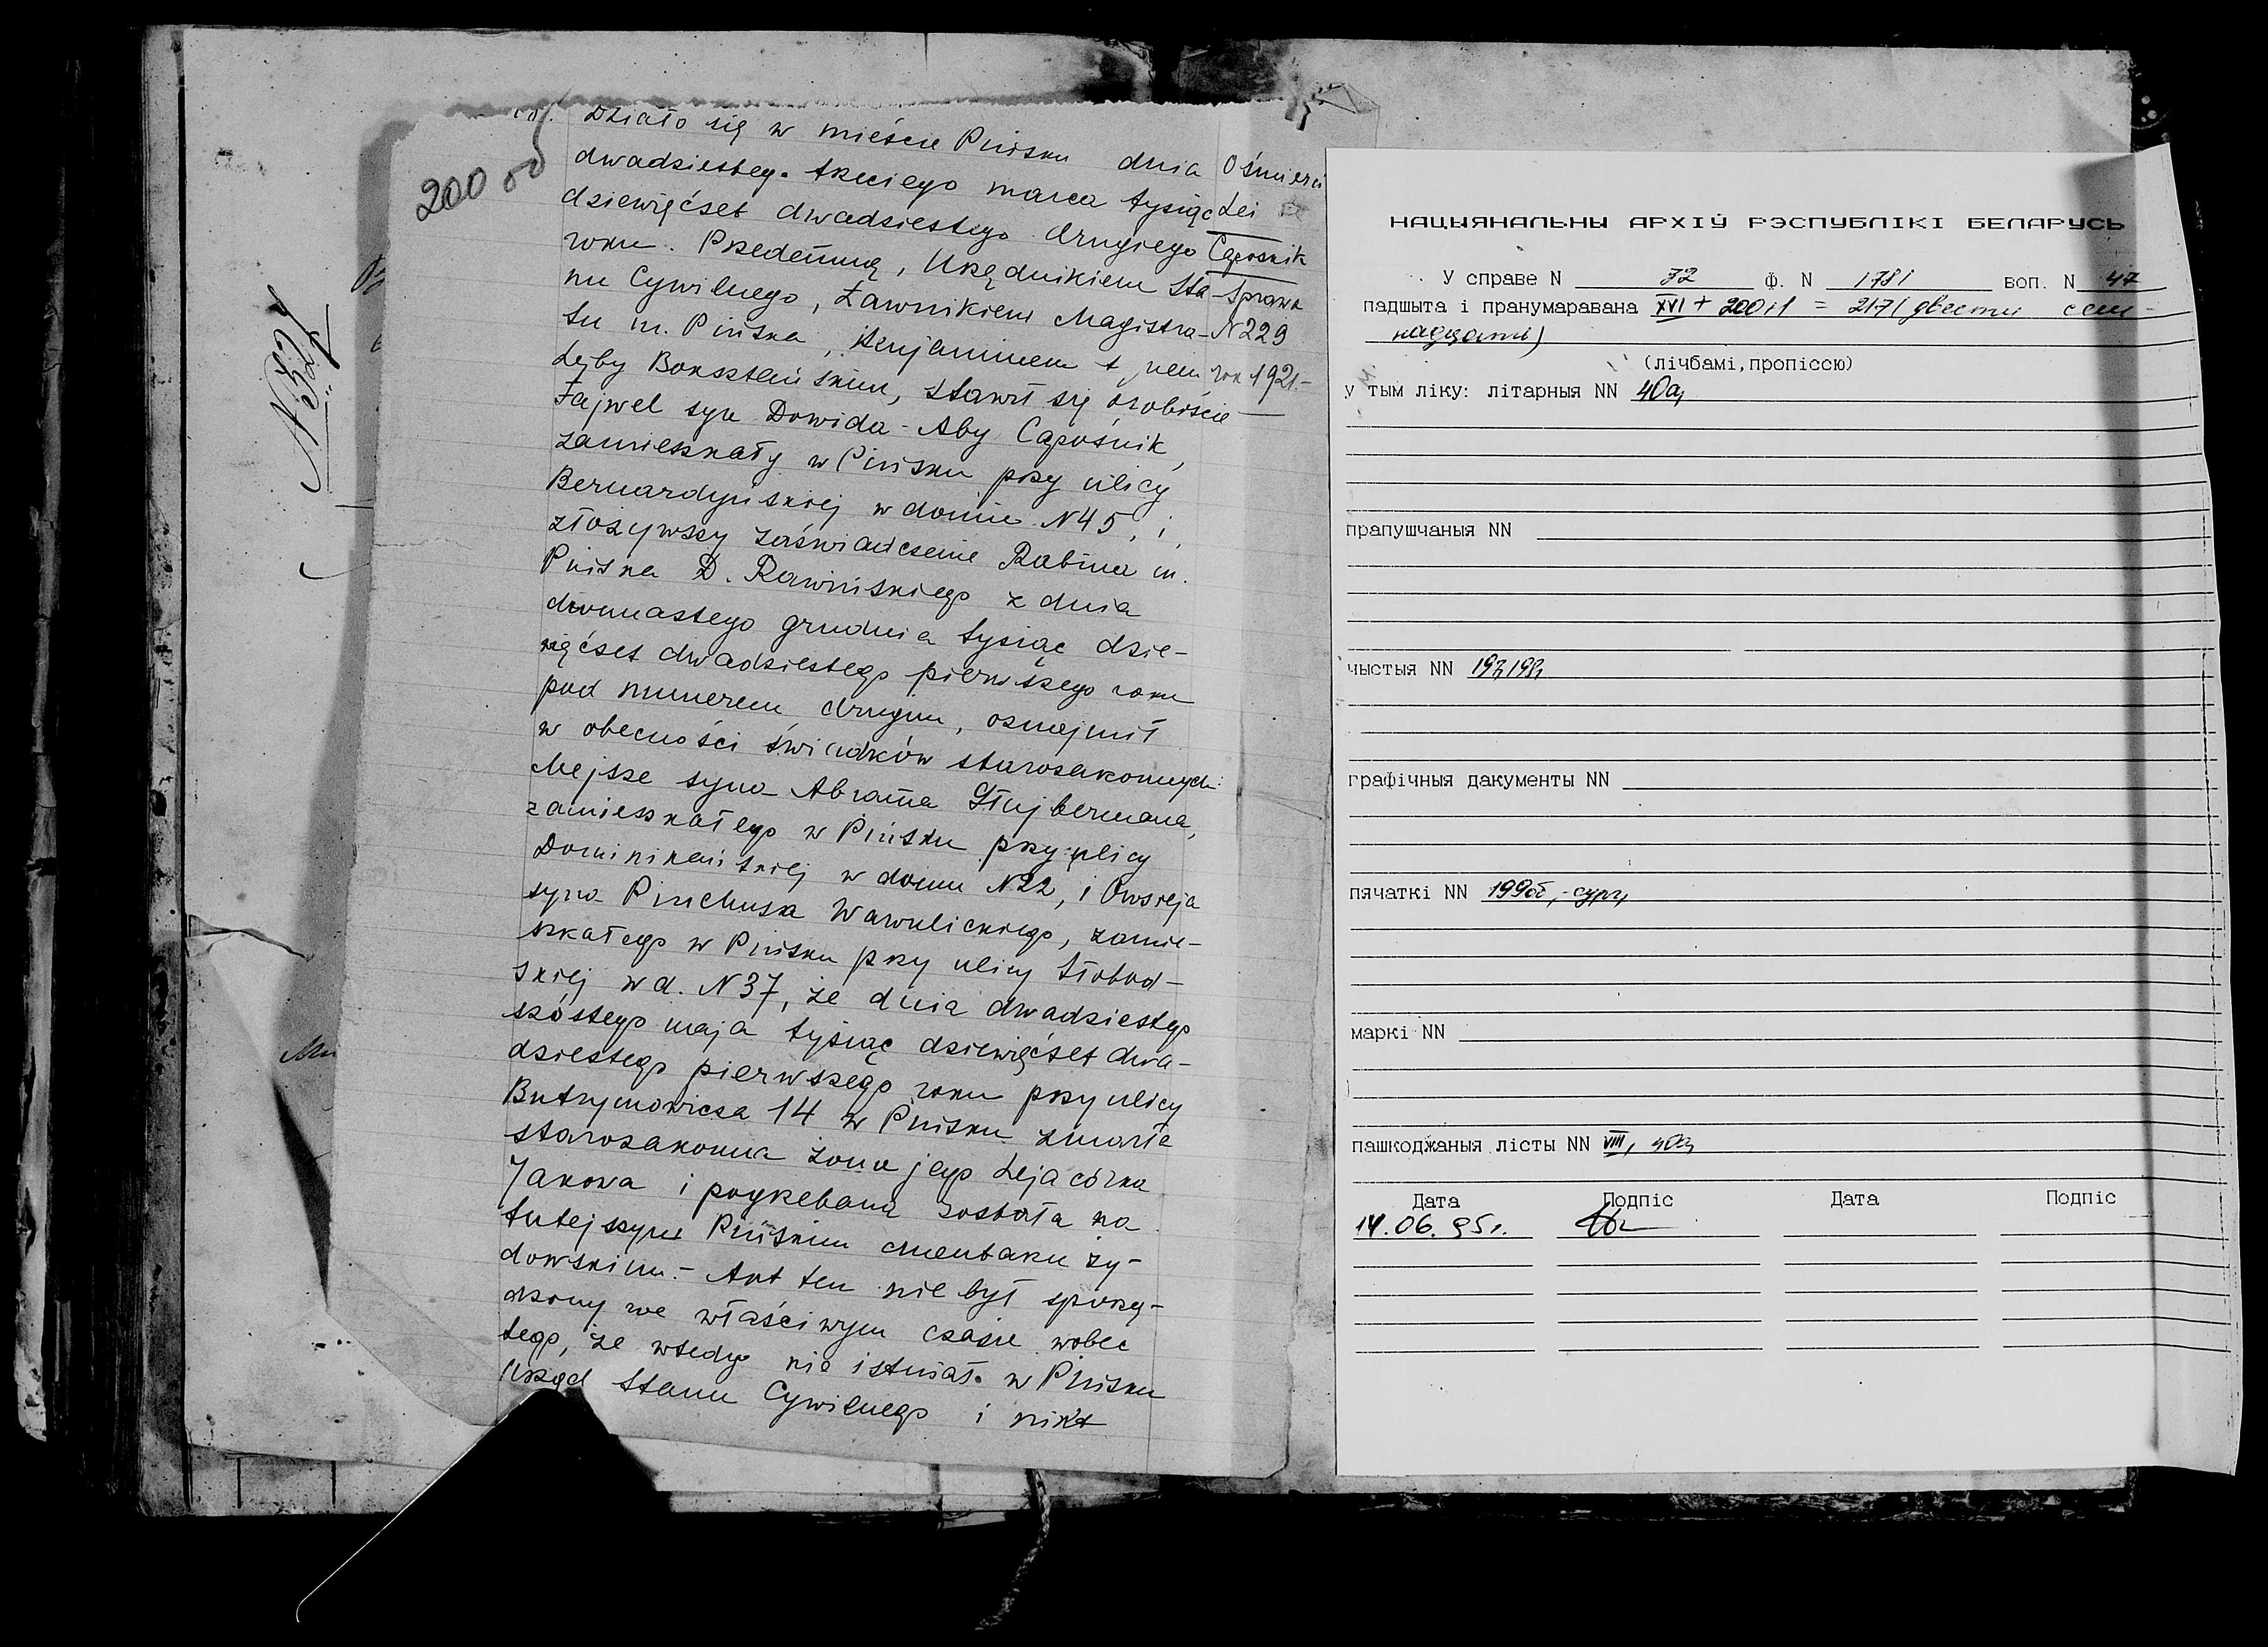 200 об
Działo się w mieście Pińsku dnia
dwadziestego trzeciego marca tysiąc
dziewięćset dwadziestego drugiego
roku. Przedemną, Urzędnikiem Sta-
nu Cywilnego, Ławnikiem Magistra-
tu m. Pińska, Benjaminem
Leyby Boksztańskim, stawił się osobiście
Fajwel syn Dowida-Aby Capośnik,
zamieszkały w Pińsku przy ulicy
Bernardyńskiej w domu N45, i,
złożywszy zaświadczenie Rabina m.
Pińska D. Rawińskiego z dnia
dwunastego grudnia tysiąc dzie-
więćset dwadziestego pierwszego roku
pod numerem drugim, oznajmił
w obecności świadków starozakonnych:
Mejsze syna Abrama Sztujbermana,
zamieszkałego w Pińsku przy ulicy
Dominikańskiej w domu N22, i Owsieja
syna Pinchusa Wawulickiego, zamie-
szkałego w Pińsku przy ulicy Słobod-
skiej w d. N37, że dnia dwadziestego
szóstego maja tysiąc dziewięćset dwa-
dziestego pierwszego roku przy ulicy
Butrymowicza 14 w Pińsku zmarła
starozakonna żona jego Leja córka
Jakowa i pogrzebana została na
tutejszym Pińskim cmentarzu ży-
dowskim.- Akt ten nie był sporzą-
dzony we właściwym czasie wobec
tego, że wtedy nie istniał w Pińsku
Urząd Stanu Cywilnego i nikt
O śmierci
Lei
Capośnik
Sprawa
N229
rok 1921.-
НАЦЫЯНАЛЬНЫ АРХІЎ РЭСПУБЛІКІ БЕЛАРУСЬ
У справе N 72 Ф. N 1781 воп. N 47
падшыта і пранумаравана XVI + 200+1 = 217 (двести сем-
надцать)
(лічбамі,пропіссю)
у тым ліку: літарныя NN 40а,
прапушчаныя NN
чыстыя NN 197,198,
графічныя дакументы NN
пячаткі NN 199об,-сург,
маркі NN
пашкоджаныя лісты NN VIII,
Дата Подпіс Дата Подпіс
14.06.95г.